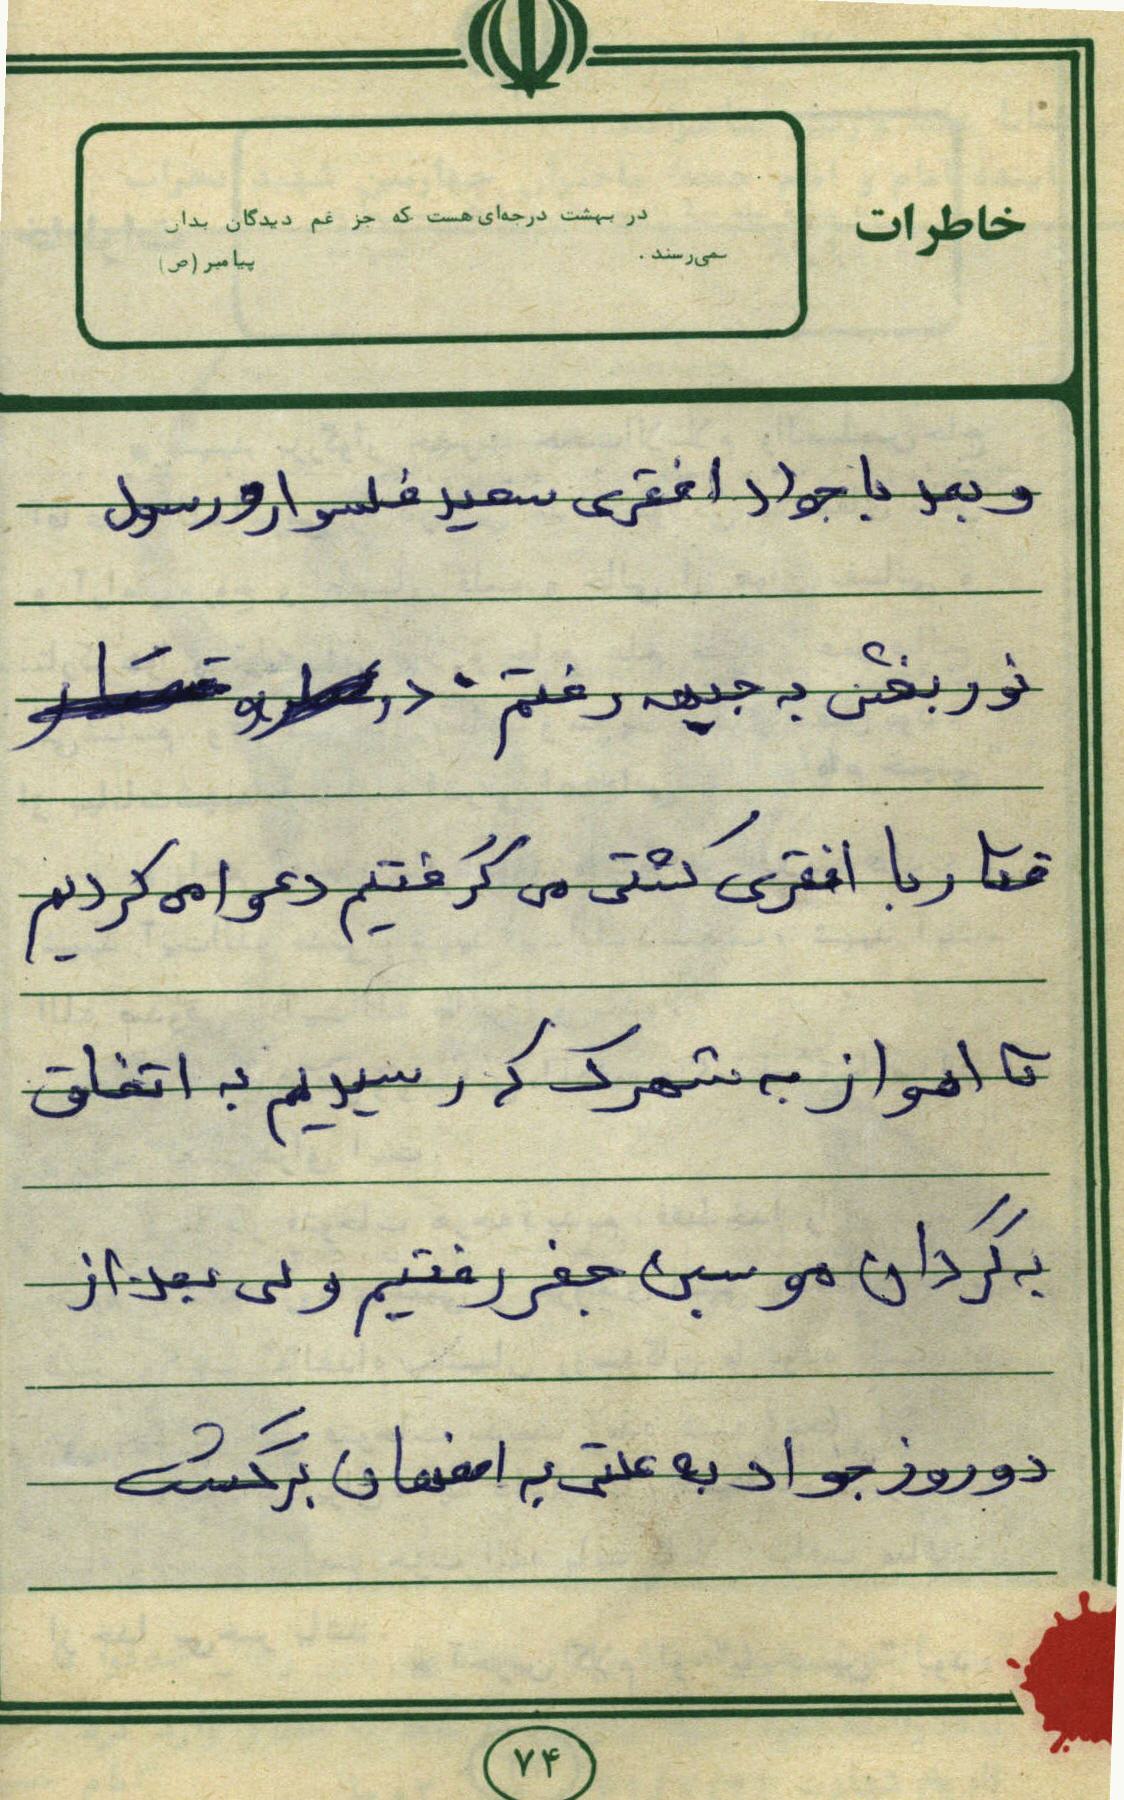 خاطرات
در بهشت درجه‌ای هست که جز غم دیدگان بدان
نمی‌رسند . پیامبر (ص)
و بعد با جواد افقری سعید فلسوار و رسول
نوربخش به جبهه رفتم . در
قطار با افقری کشتی می گرفتیم دعوا می کردیم
تا اهواز به شهرک که رسیدیم به اتفاق
به گردان موسبن جعفر رفتیم ولی بعد از
دو روز جواد به علتی به اصفهان برگشت
۷۴